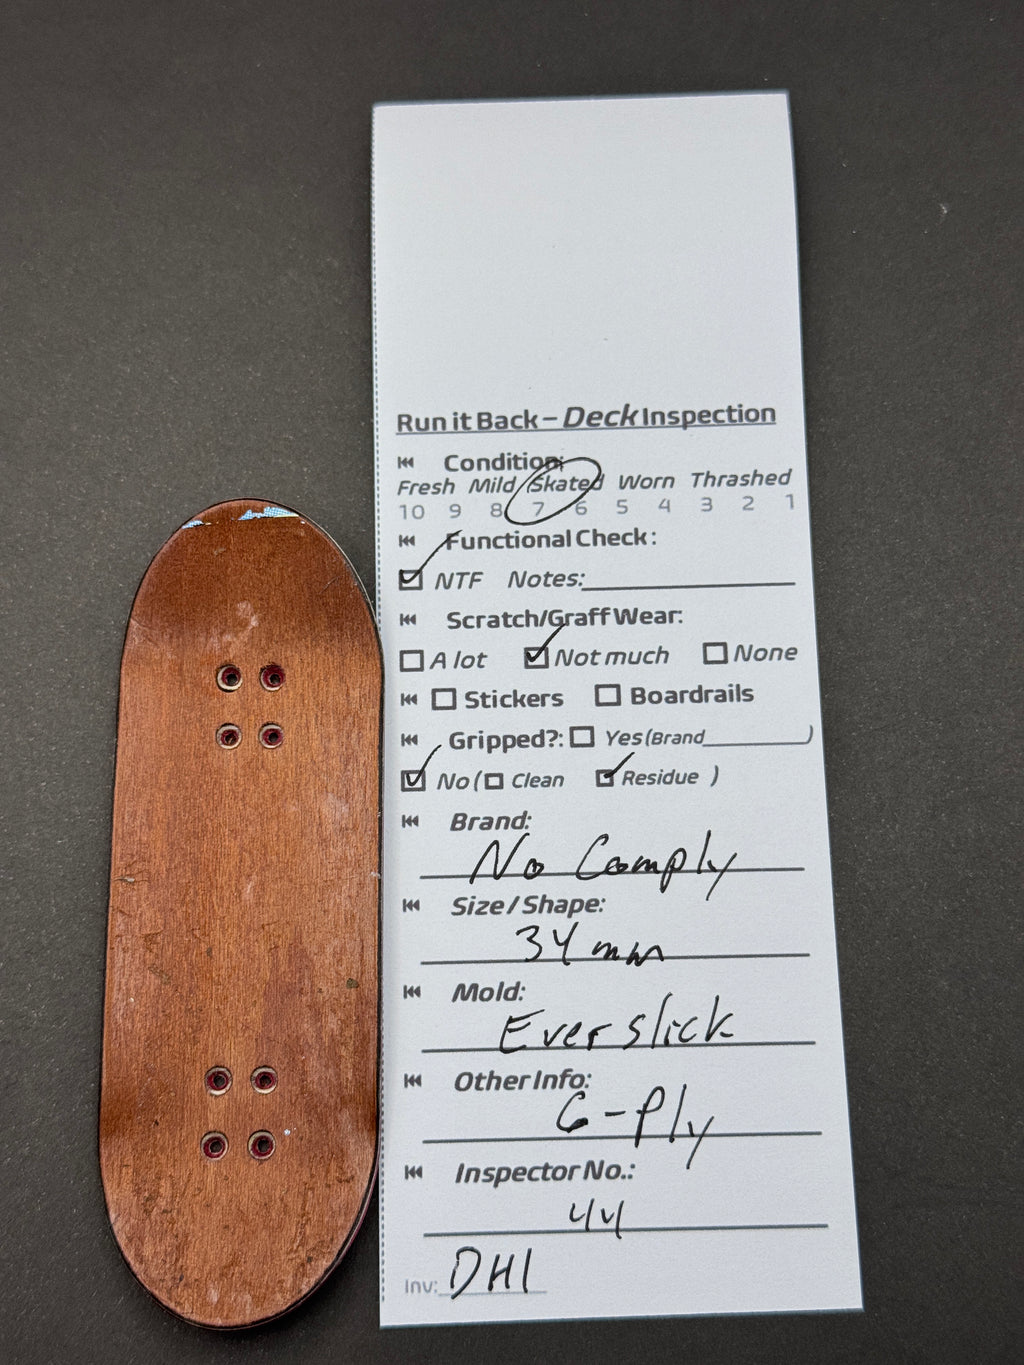 Run it Back – Deck Inspection
Condition:
Fresh Mild Skated Worn Thrashed
10 9 8 7 6 5 4 3 2 1
Functional Check:
NTF Notes:
Scratch/Graff Wear:
A lot Not much None
Stickers Boardrails
Gripped?: Yes (Brand )
No ( Clean Residue )
Brand:
No Comply
Size / Shape:
34mm
Mold:
Everslick
Other Info:
6-Ply
Inspector No.:
44
Inv: DH1